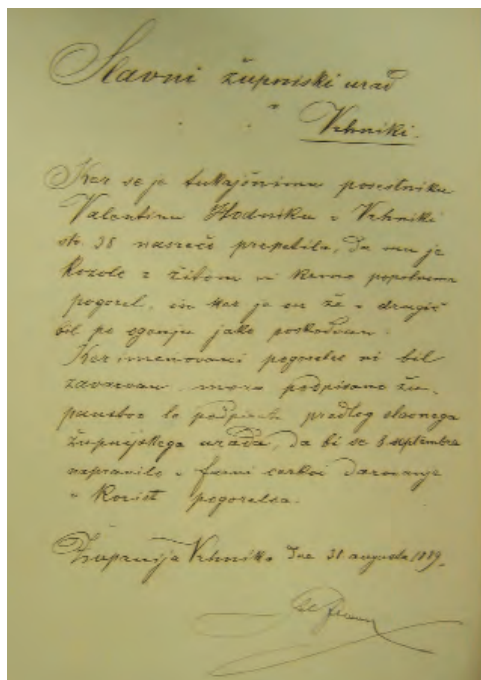 Slavni župniski urad
v
Vrhniki.
Ker se je tukajšnimu posestniku
Valentinu Hodniku v Vrhniki
št. 38 nasreča pripetila, da mu je
kozolc z žitom in popolnoma
pogorel, in ker je on že v drugič
bil po ognju jako poškodvan.
Ker imenovani pogorelec ni bil
zavarvan, mora podpisano žu-
panstvo predlog slavnega
župnijskega urada, da bi se 8 septembra
napravilo v farni cerkvi darvanje
v korist pogorelca.
Županija Vrhnika dne 31 avgusta 1889.